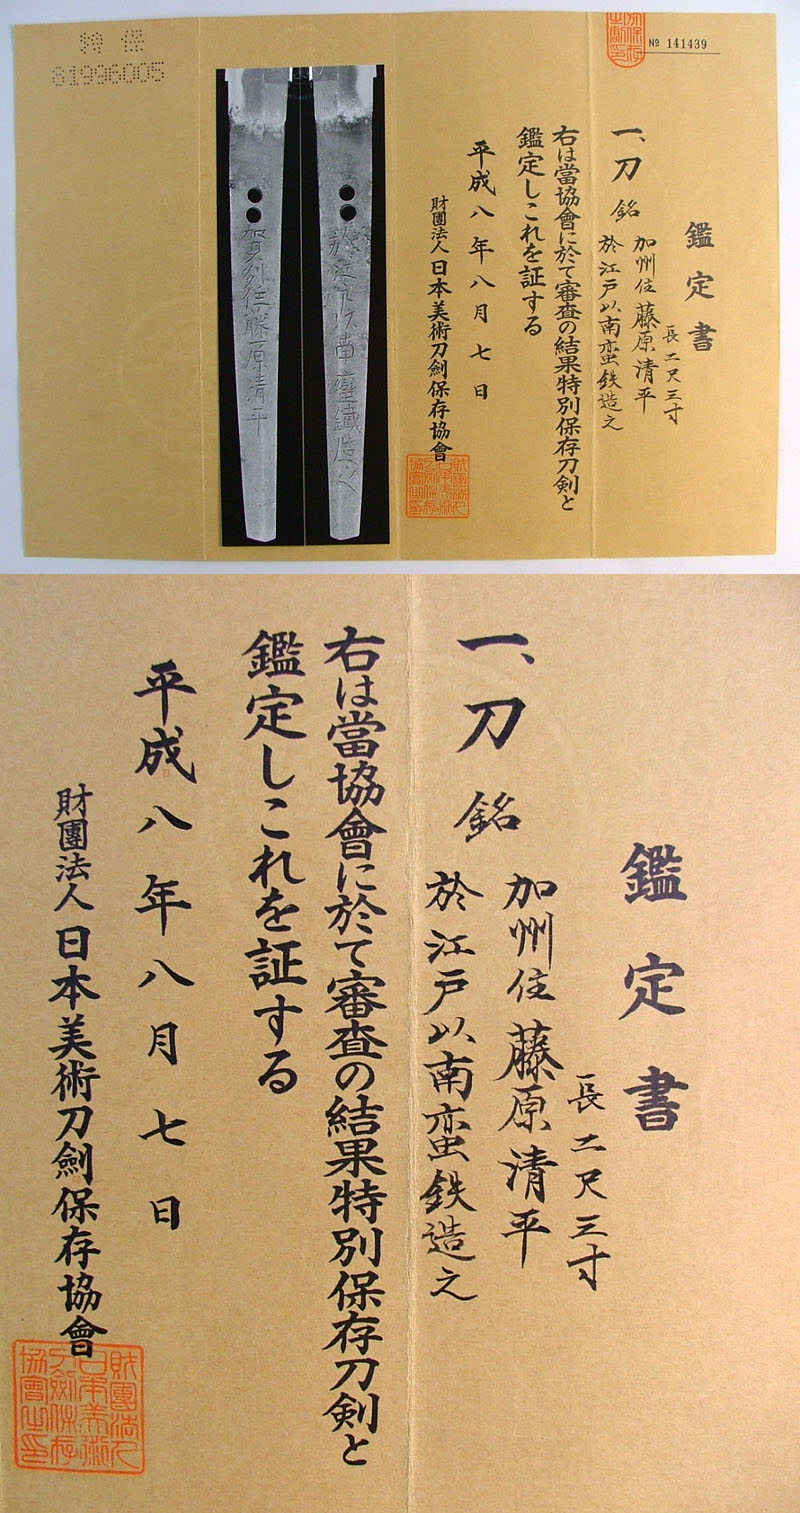 特 保
81996005
№ 141439
鑑定書
長二尺三寸
一、刀 銘 加州住藤原清平
於江戸以南蛮鉄造之
右は當協會に於て審査の結果特別保存刀剣と
鑑定しこれを証する
平成八年八月七日
財團法人日本美術刀劍保存協會
於江戸以南蠻鐵造之
賀州住藤原清平
鑑定書
長二尺三寸
一、刀 銘 加州住藤原清平
於江戸以南蛮鉄造之
右は當協會に於て審査の結果特別保存刀剣と
鑑定しこれを証する
平成八年八月七日
財團法人日本美術刀劍保存協會